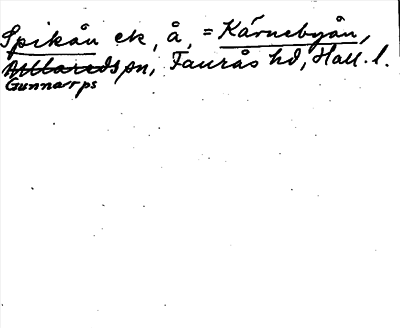 Spikån ek, å, = Kärnebyån,
Attareds sn, Faurås hd, Hall. l.
Gunnarps